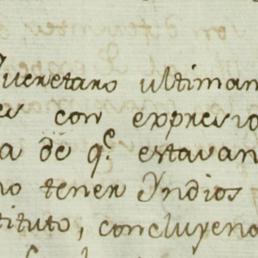 Queretaro ultiman
es con expresio
a de q.e estavan
no tener Yndios
tituto, concluyeno